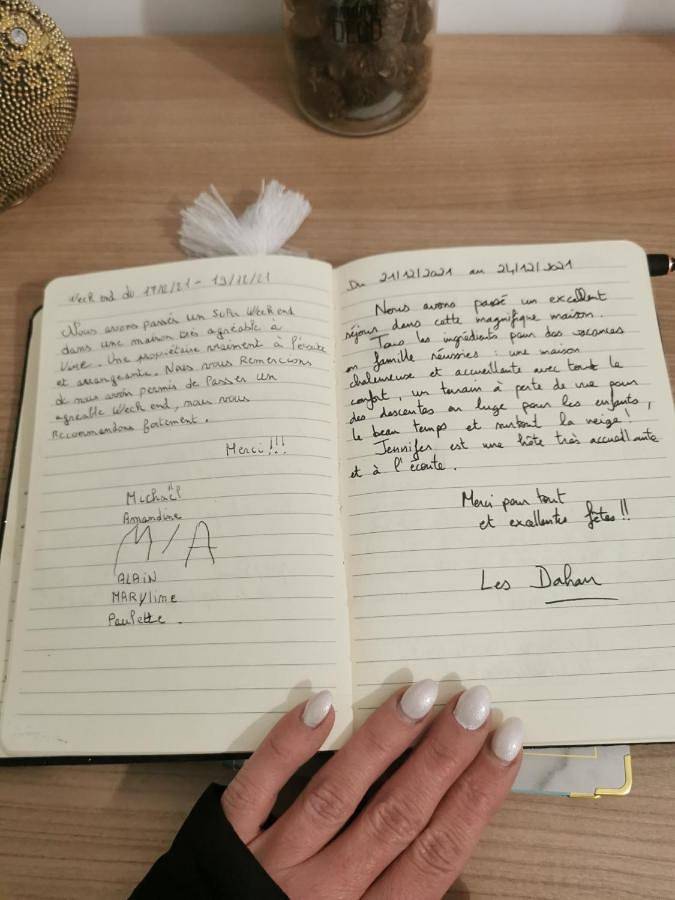 Week end du 17/12/21 - 19/12/21
Nous avons passés un super Week end
dans une maison très agréable à
vivre. Une propriétaire vraiment à l'écoute
et arrangeante. Nous vous Remercions
de nous avoir permis de Passer un
agréable Week end, nous vous
Recommandons fortement.
Merci!!!
Michaël
Amandine
M/A
ALAIN
MARYline
Paulette.
Du 21/12/2021 au 24/12/2021
Nous avons passé un excellent
séjour dans cette magnifique maison.
Tous les ingrédients pour des vacances
en famille réussies : une maison
chaleureuse et accueillante avec tout le
confort, un terrain à perte de vue pour
des descentes en luge pour les enfants,
le beau temps et surtout la neige!
Jennifer est une hôte très accueillante
et à l'écoute.
Merci pour tout
et excellentes fêtes!!
Les Dahan